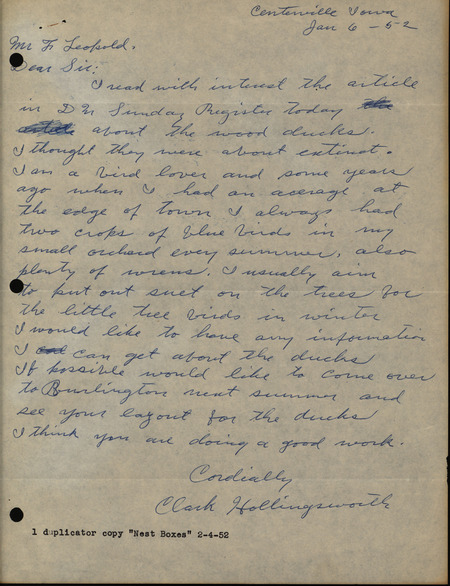 Centerville Iowa
Jan 6 - 52
Mr F. Leopold.
Dear Sir:
I read with interest the article
in D M Sunday Register today the
article about the wood ducks.
I thought they were about extinct.
I am a bird lover and some years
ago when I had an acerage at
the edge of town I always had
two crops of blue birds in my
small orchard every summer, also
plenty of wrens. I usually aim
to put out suet on the trees for
the little tree birds in winter
I would like to have any information
I can get about the ducks
If possible would like to come over
to Burlington next summer and
see your layout for the ducks
I think you are doing a good work.
Cordially
Clark Hollingsworth
1 duplicator copy "Nest Boxes" 2-4-52